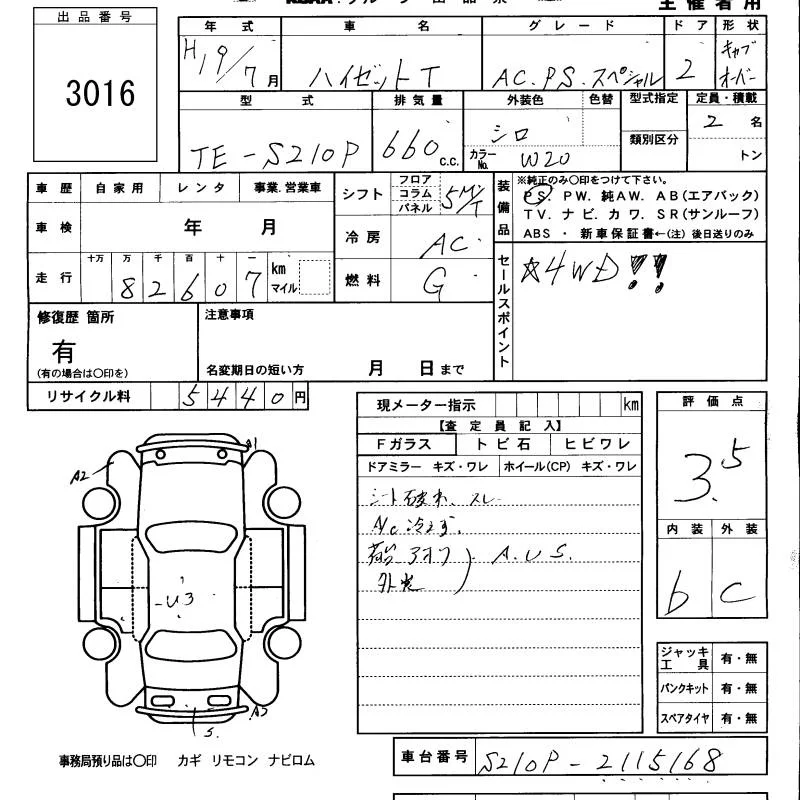 主催者用
出品番号
3016
年式 車名 グレード ドア 形状
H19/7月 ハイゼットT AC.PS.スペシャル 2 キャブオーバー
型式 排気量 外装色 色替 型式指定 定員・積載
TE-S210P 660c.c. シロ カラーNo. W20 類別区分 2名
トン
車歴 自家用 レンタ 事業.営業車 シフト フロア コラム パネル 5M/T
車検 年 月 冷房 AC
走行 十万 万 千 百 十 一 km マイル 燃料 G
82607
装備品 ※純正のみ〇印をつけて下さい。
PS. PW. 純AW. AB(エアバック)
TV. ナビ. カワ. SR(サンルーフ)
ABS ・ 新車保証書←(注) 後日送りのみ
セールスポイント ☆4WD!!
修復歴 箇所 注意事項
有
(有の場合は〇印を) 名変期日の短い方 月 日まで
リサイクル料 5440円
現メーター指示 km
【査定員記入】
Fガラス トビ石 ヒビワレ
ドアミラー キズ・ワレ ホイール(CP) キズ・ワレ
シート破れ、スレ
A/C冷えず
荷台アオリ A.U.S.
外装
評価点
3.5
内装 外装
b C
A1
A2
U3
A2
S.
ジャッキ工具 有・無
パンクキット 有・無
スペアタイヤ 有・無
事務局預り品は〇印 カギ リモコン ナビロム
車台番号 S210P-2115168